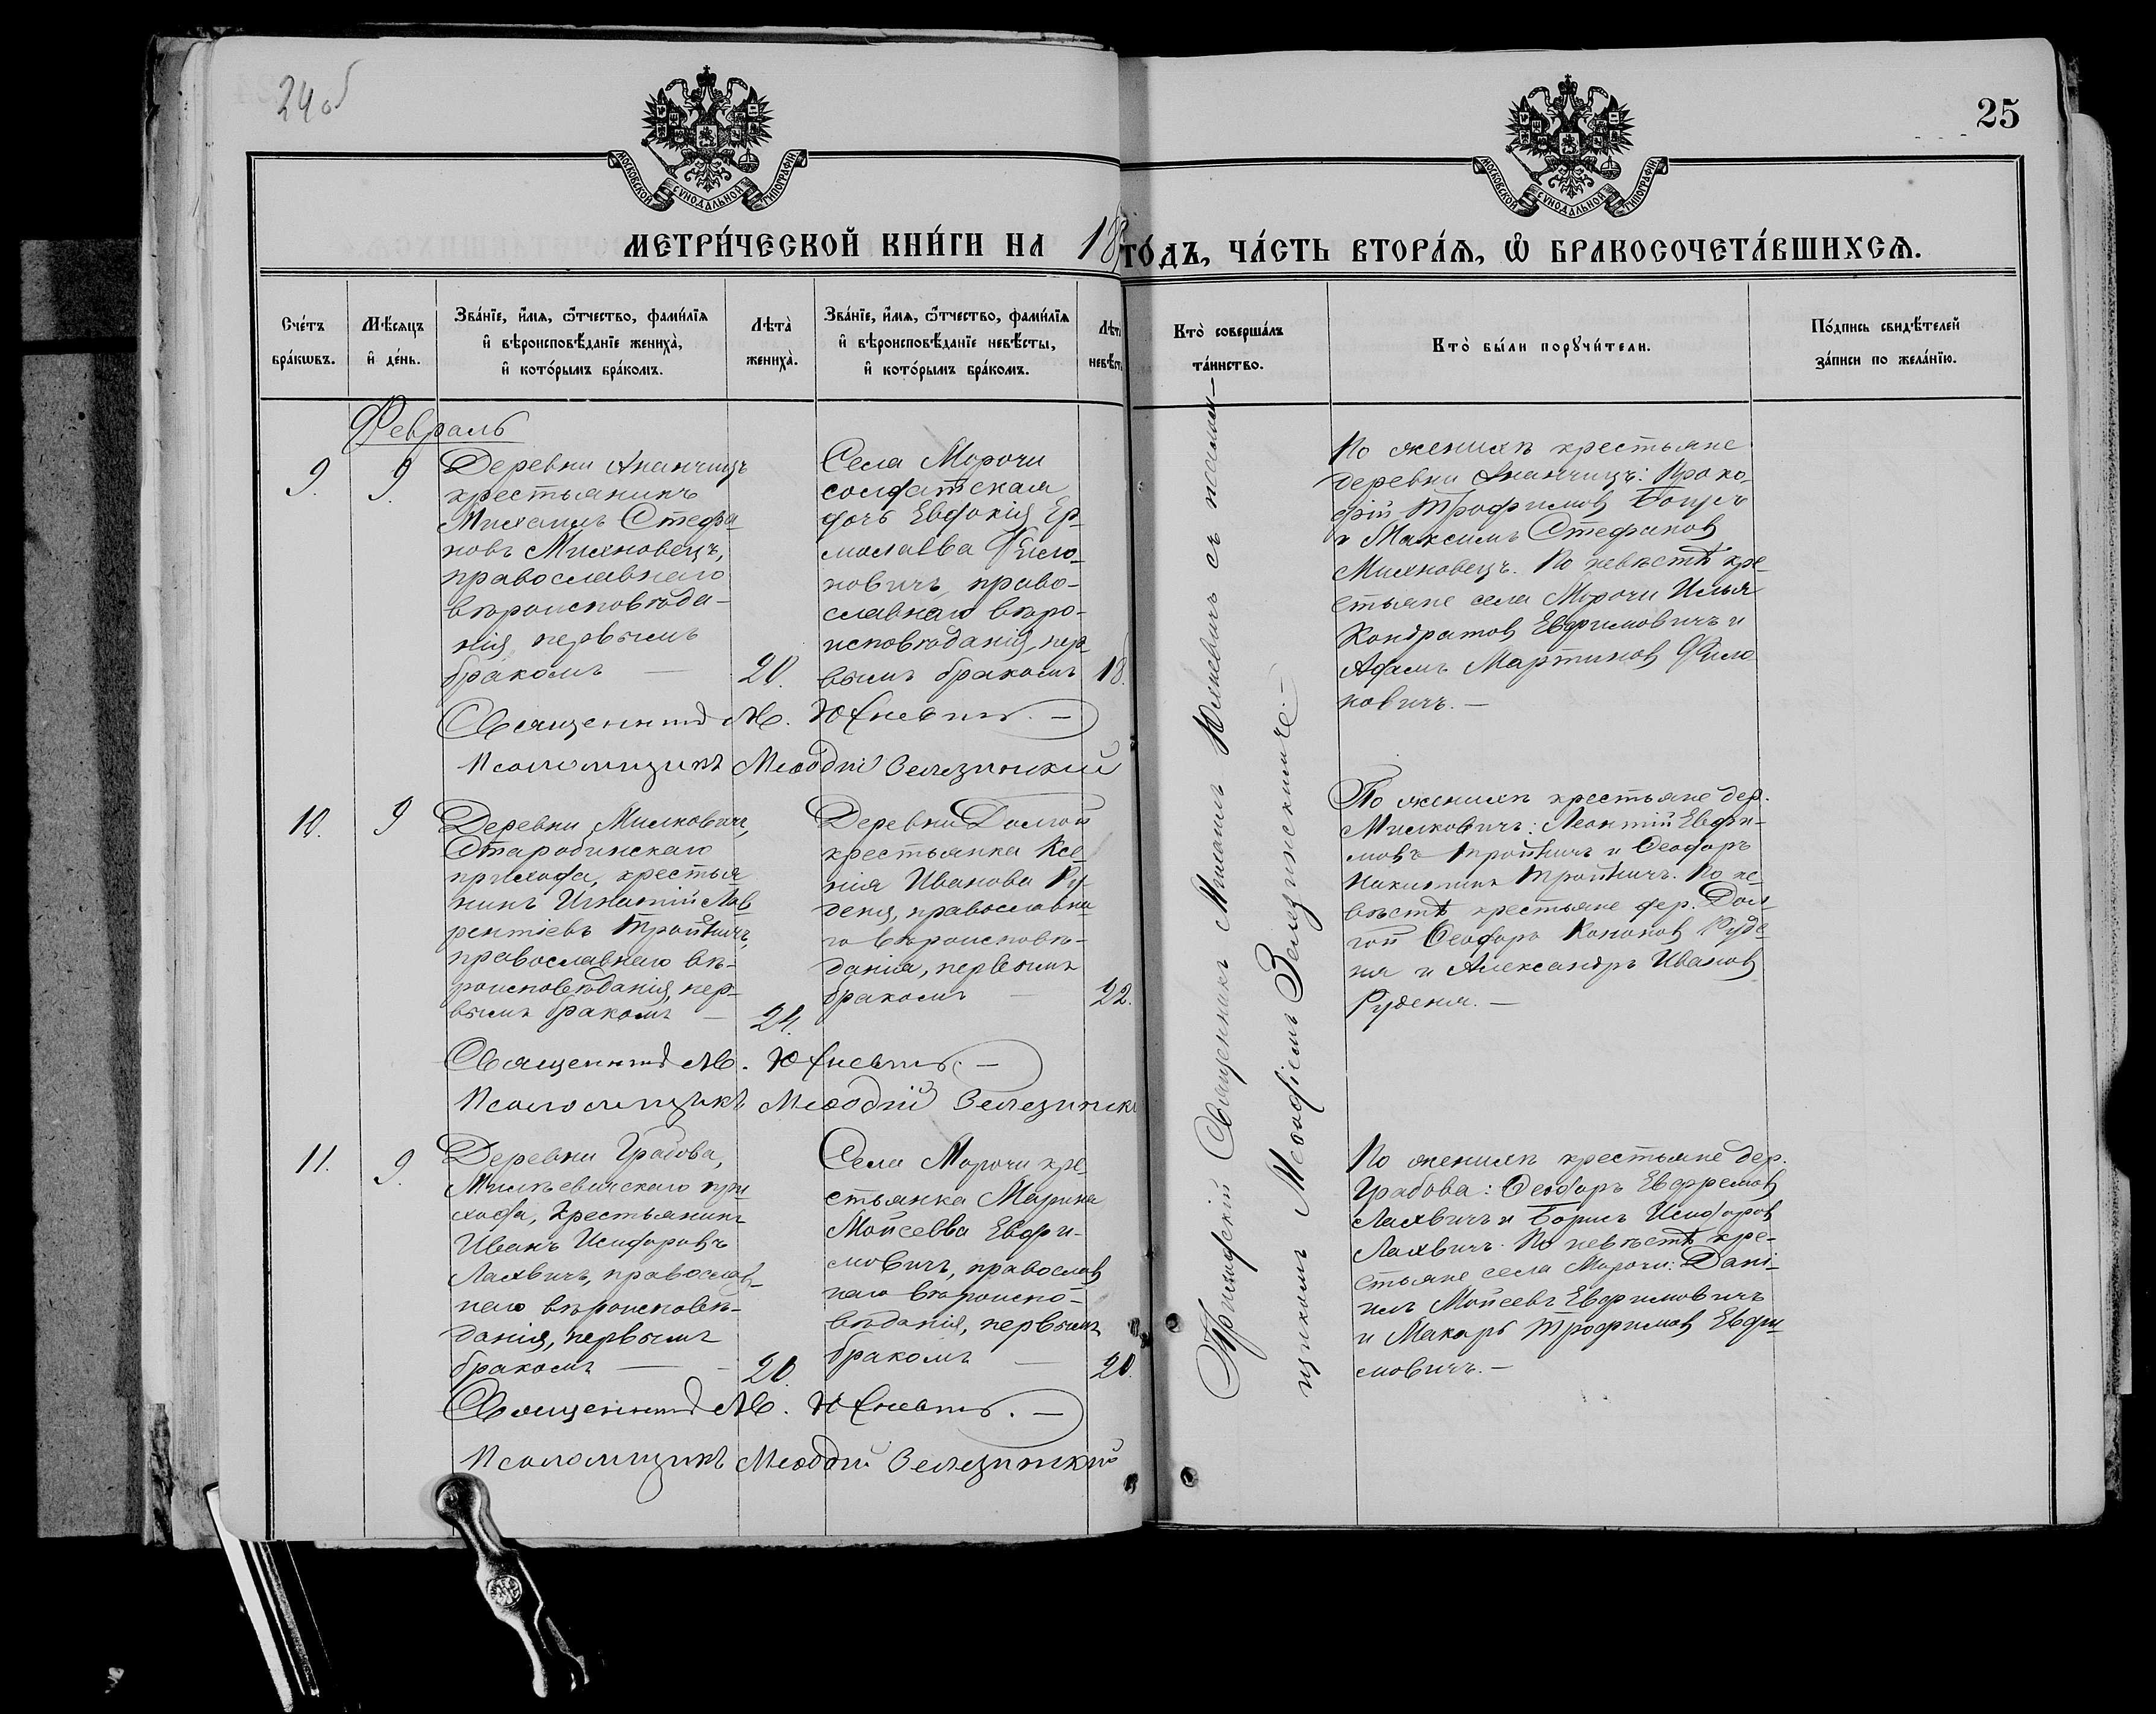 24 об
25
МОСКОВСКОЙ СѴНОДАЛЬНОЙ ТИПОГРАФІИ.
МОСКОВСКОЙ СѴНОДАЛЬНОЙ ТИПОГРАФІИ.
МЕТРИ́ЧЕСКОЙ КНИ́ГИ НА 18
ГО́ДЪ, ЧА́СТЬ ВТОРА́Ѧ, Ѡ҆ БРАКОСОЧЕТА́ВШИХСѦ.
Сче́тъ бра́кѡвъ.
Мѣ́сяцъ и҆ де́нь.
Зва́нїе, и҆́мѧ, ѻ҆́тчество, фами́лїѧ и҆ вѣроисповѣ́данїе жениха̀, и҆ кото́рымъ бра́комъ.
Лѣта̀ жениха̀.
Зва́нїе, и҆́мѧ, ѻ҆́тчество, фами́лїѧ и҆ вѣроисповѣ́данїе невѣ́сты, и҆ кото́рымъ бра́комъ.
Лѣт невѣ́ст
Кто̀ соверша́лъ та́инство.
Кто̀ бы́ли порꙋчи́тели.
По́дпись свидѣ́телей за́писи по жела́нїю.
Февраль
9.
9.
Деревни Ананчицъ
крестьянинъ
Михаилъ Стефа
новъ Михновецъ,
православнаго
вѣроисповѣда-
нія, первымъ
бракомъ —
20.
Села Морочи
солдатская
дочь Евдокія Ер-
молаева Фило-
новичъ, право-
славнаго вѣро-
исповѣданія, пер
вымъ бракомъ
18.
По женихѣ крестьяне
деревни Ананчицъ: Проко-
фій Трофимовъ
и Максимъ Стефановъ
Михновецъ. По невѣстѣ кре
стьяне села Морочи Илья
Кондратовъ Евфимовичъ и
Адамъ Мартиновъ Фило
новичъ. —
Священникъ М. Юхневичъ. —
Псаломщикъ Меѳодій Зелезинскій
10.
9
Деревни Милковичъ,
Старобинскаго
прихода, крестья
нинъ Игнатій Лав
рентіевъ
православнаго вѣ-
роисповѣданія, пер-
вымъ бракомъ —
24.
Деревни Долгой
крестьянка Ксе-
нія Иванова Ру-
деня, православна
го вѣроисповѣ-
данія, первымъ
бракомъ —
22.
По женихѣ крестьяне дер.
Милковичъ: Леонтій Евфи-
мовъ и Ѳеодоръ
Никитинъ По не-
вѣстѣ крестьяне дер. Дол-
гой Ѳеодоръ Кононовъ Руде
ня и Александръ Ивановъ
Руденя. —
Священникъ М. Юхневичъ. —
Псаломщикъ Меѳодій Зелезинскі
11.
9.
Деревни Грабова,
при
хода, крестьянинъ
Иванъ Исидоровъ
Лахвичъ, православ-
наго вѣроисповѣ-
данія, первымъ
бракомъ —
20
Села Морочи кре
стьянка Марина
Мойсеева Евфи-
мовичъ, православ
наго вѣроиспо-
вѣданія, первымъ
бракомъ —
20.
По женихѣ крестьяне дер.
Грабова: Ѳеодоръ Евфремовъ
Лахвичъ и Борисъ Исидоровъ
Лахвичъ. По невѣстѣ кре-
стьяне села Морочи: Дані-
илъ Мойсеевъ Евфимовичъ
и Макаръ Трофимовъ Евфи
мовичъ. —
Священникъ М. Юхневичъ. —
Псаломщикъ Меѳодій Зелезинскій
Приходскій Священникъ Михаилъ Юхневичъ съ псалом—
щикомъ Меѳодіемъ Зелезинскимъ. —